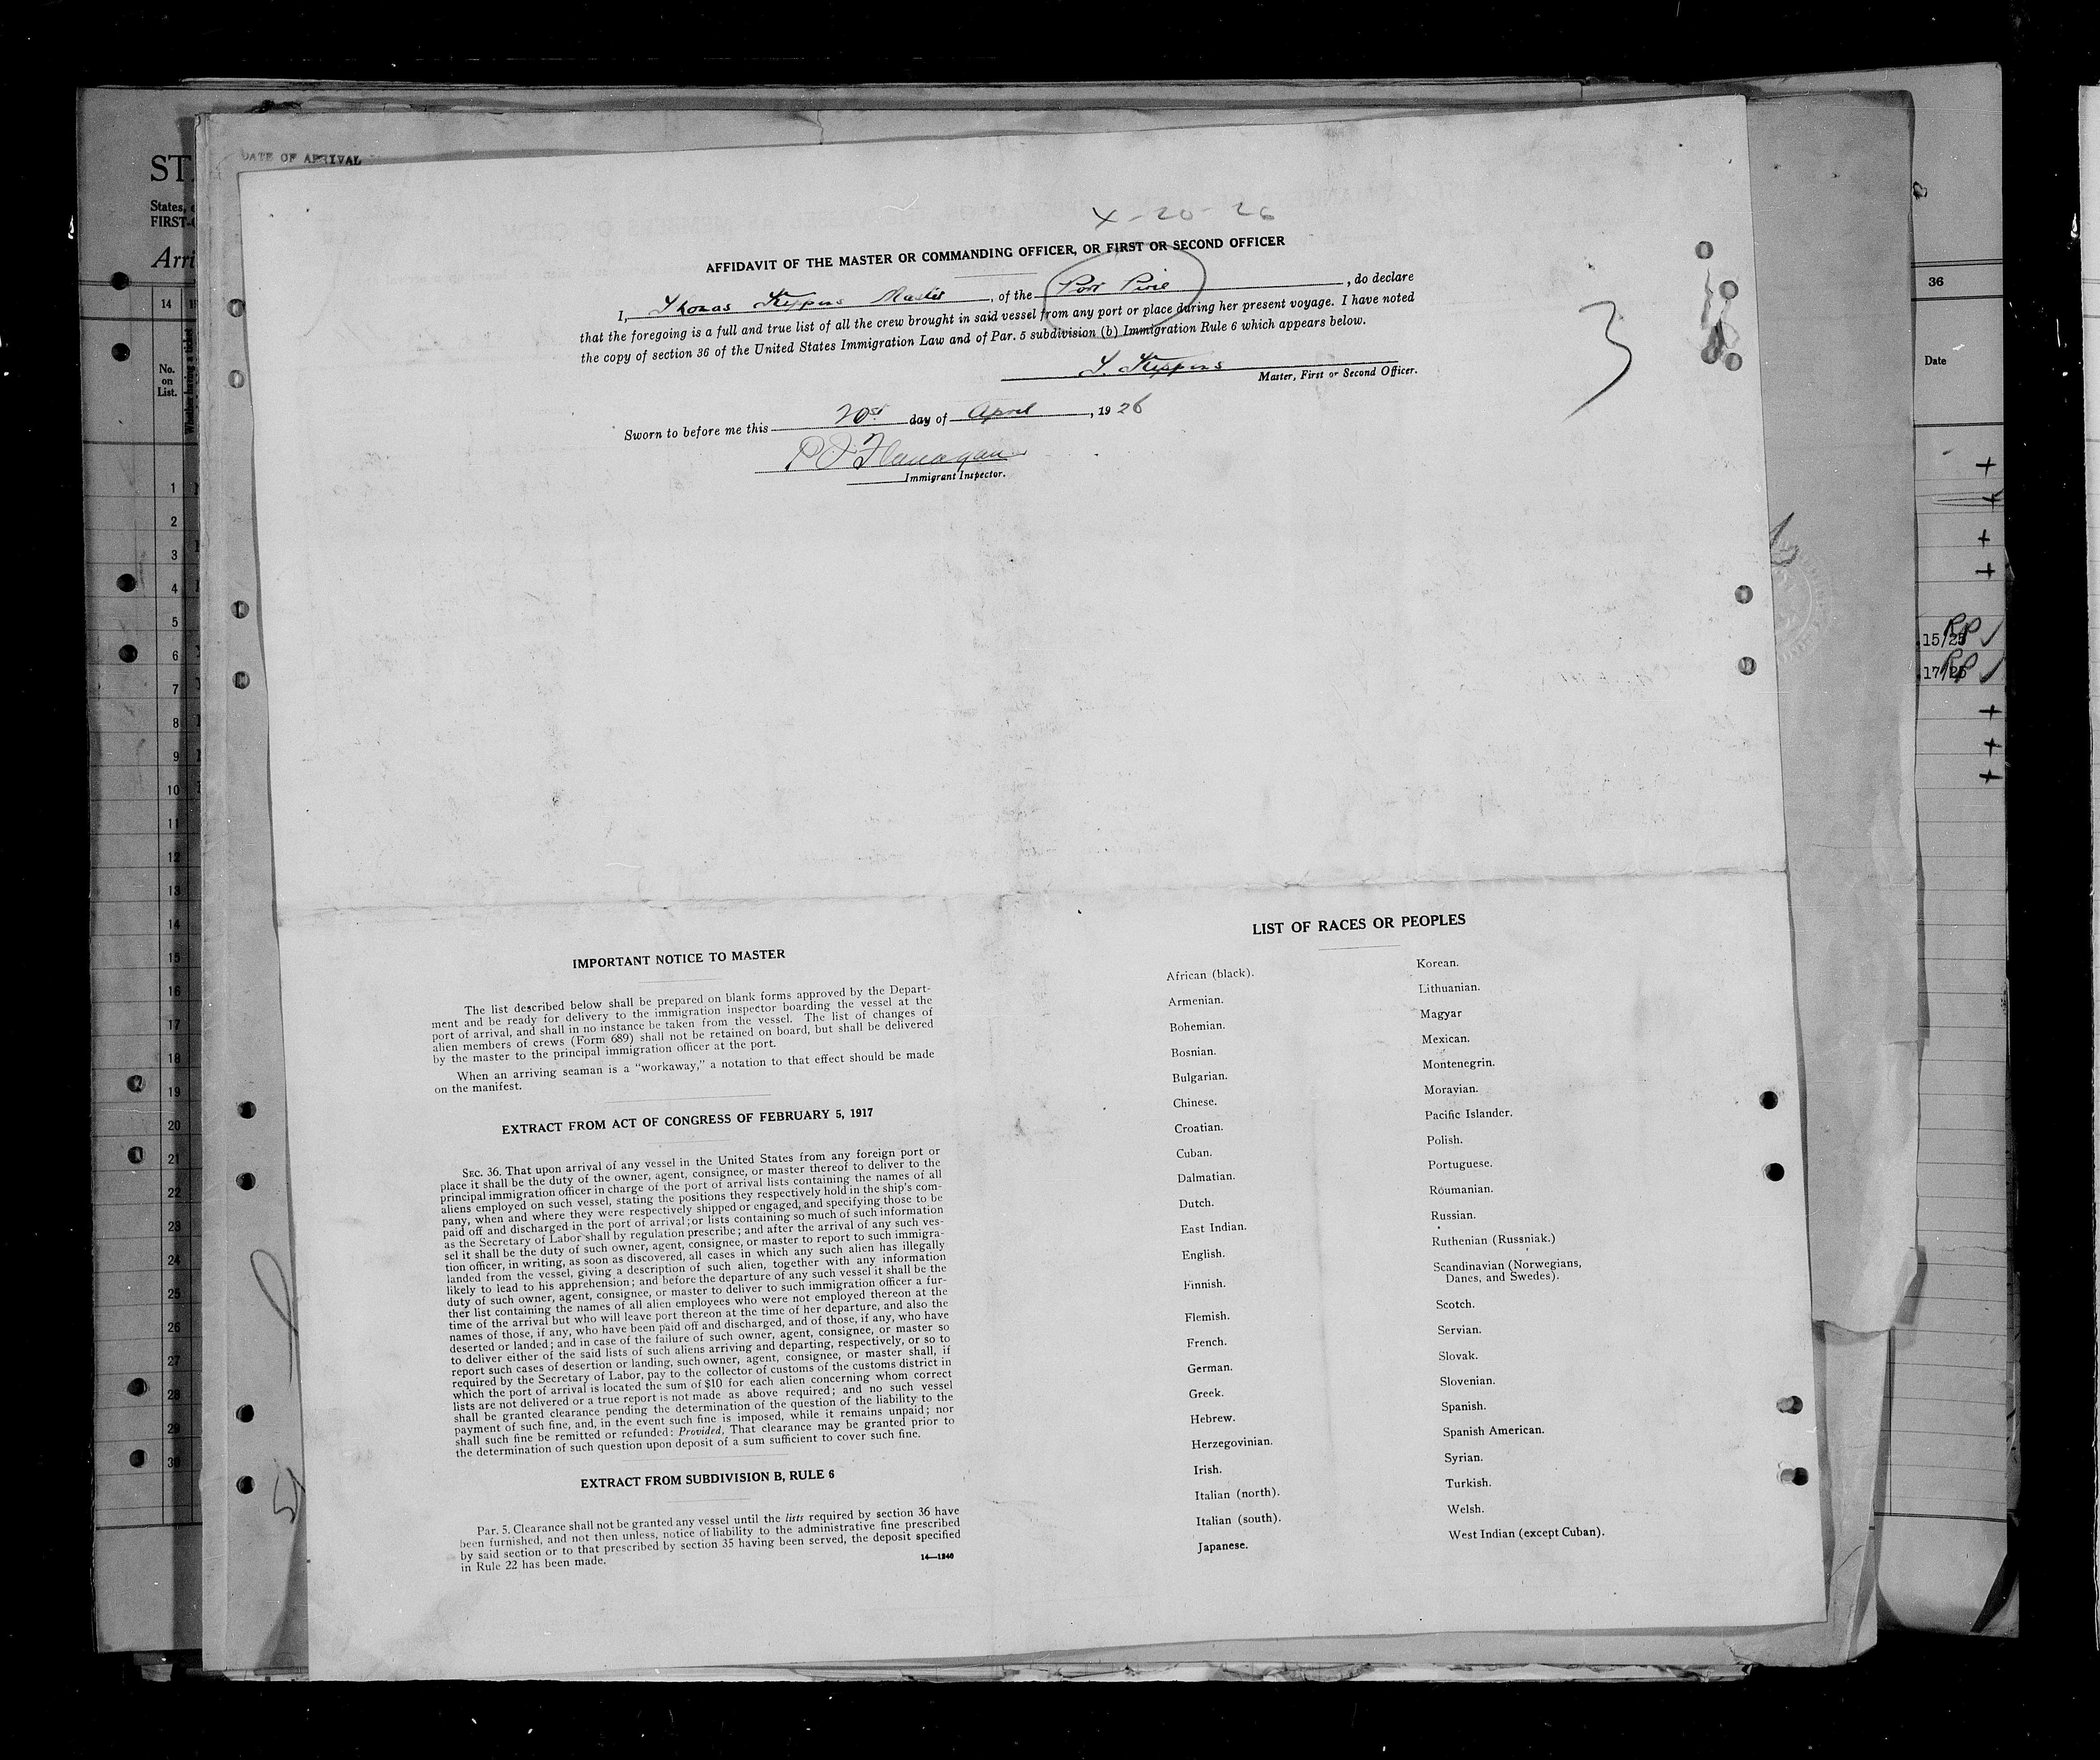 DATE OF ARRIVAL
ST
States,
FIRST-
Arri
14
No.
on
List.
Whether having a ticket
1
2
3
4
5
6
7
8
9
10
11
12
13
14
15
16
17
18
19
20
21
22
23
24
25
26
27
28
29
30
4-20-26
AFFIDAVIT OF THE MASTER OR COMMANDING OFFICER, OR FIRST OR SECOND OFFICER
I, Thomas Kippins Master, of the Port Pirie, do declare
that the foregoing is a full and true list of all the crew brought in said vessel from any port or place during her present voyage. I have noted
the copy of section 36 of the United States Immigration Law and of Par. 5 subdivision (b) Immigration Rule 6 which appears below.
T. Kippins
Master, First or Second Officer.
Sworn to before me this 20st day of April, 1926
P J Flanagan
Immigrant Inspector.
3
IMPORTANT NOTICE TO MASTER
The list described below shall be prepared on blank forms approved by the Depart-
ment and be ready for delivery to the immigration inspector boarding the vessel at the
port of arrival, and shall in no instance be taken from the vessel. The list of changes of
alien members of crews (Form 689) shall not be retained on board, but shall be delivered
by the master to the principal immigration officer at the port.
When an arriving seaman is a "workaway," a notation to that effect should be made
on the manifest.
EXTRACT FROM ACT OF CONGRESS OF FEBRUARY 5, 1917
SEC. 36. That upon arrival of any vessel in the United States from any foreign port or
place it shall be the duty of the owner, agent, consignee, or master thereof to deliver to the
principal immigration officer in charge of the port of arrival lists containing the names of all
aliens employed on such vessel, stating the positions they respectively hold in the ship's com-
pany, when and where they were respectively shipped or engaged, and specifying those to be
paid off and discharged in the port of arrival; or lists containing so much of such information
as the Secretary of Labor shall by regulation prescribe; and after the arrival of any such ves-
sel it shall be the duty of such owner, agent, consignee, or master to report to such immigra-
tion officer, in writing, as soon as discovered, all cases in which any such alien has illegally
landed from the vessel, giving a description of such alien, together with any information
likely to lead to his apprehension; and before the departure of any such vessel it shall be the
duty of such owner, agent, consignee, or master to deliver to such immigration officer a fur-
ther list containing the names of all alien employees who were not employed thereon at the
time of the arrival but who will leave port thereon at the time of her departure, and also the
names of those, if any, who have been paid off and discharged, and of those, if any, who have
deserted or landed; and in case of the failure of such owner, agent, consignee, or master so
to deliver either of the said lists of such aliens arriving and departing, respectively, or so to
report such cases of desertion or landing, such owner, agent, consignee, or master shall, if
required by the Secretary of Labor, pay to the collector of customs of the customs district in
which the port of arrival is located the sum of $10 for each alien concerning whom correct
lists are not delivered or a true report is not made as above required; and no such vessel
shall be granted clearance pending the determination of the question of the liability to the
payment of such fine, and, in the event such fine is imposed, while it remains unpaid; nor
shall such fine be remitted or refunded: Provided, That clearance may be granted prior to
the determination of such question upon deposit of a sum sufficient to cover such fine.
EXTRACT FROM SUBDIVISION B, RULE 6
Par. 5. Clearance shall not be granted any vessel until the lists required by section 36 have
been furnished, and not then unless, notice of liability to the administrative fine prescribed
by said section or to that prescribed by section 35 having been served, the deposit specified
in Rule 22 has been made.
14—1240
LIST OF RACES OR PEOPLES
African (black).
Armenian.
Bohemian.
Bosnian.
Bulgarian.
Chinese.
Croatian.
Cuban.
Dalmatian.
Dutch.
East Indian.
English.
Finnish.
Flemish.
French.
German.
Greek.
Hebrew.
Herzegovinian.
Irish.
Italian (north).
Italian (south).
Japanese.
Korean.
Lithuanian.
Magyar
Mexican.
Montenegrin.
Moravian.
Pacific Islander.
Polish.
Portuguese.
Roumanian.
Russian.
Ruthenian (Russniak.)
Scandinavian (Norwegians,
Danes, and Swedes).
Scotch.
Servian.
Slovak.
Slovenian.
Spanish.
Spanish American.
Syrian.
Turkish.
Welsh.
West Indian (except Cuban).
36
Date
15/25 RP
17/25 RP